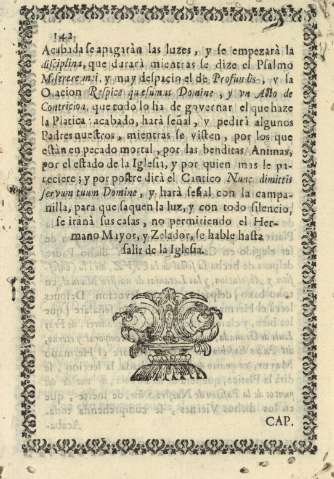 142
Acabada se apagaràn las luzes, y se empezarà la
disciplina, que darará mientras se dize el Psalmo
Miserere mei, y muy despacio el de Profundis, y la
Oracion Respice quæsumus Domine, y vn Acto de
Contricion, que todo lo ha de governar el que haze
la Platica: acabado, harà señal, y pedirà algunos
Padres nuestros, mientras se visten, por los que
estàn en pecado mortal, por las benditas Animas,
por el estado de la Iglesia, y por quien mas le pa-
reciere; y por postre dirà el Cantico Nunc dimittis
servum tuum Domine, y harà señal con la campa-
nilla, para que saquen la luz, y con todo silencio,
se iràn à sus casas, no permitiendo el Her-
mano Mayor, y Zelador, se hable hasta
salir de la Iglesia.
CAP.